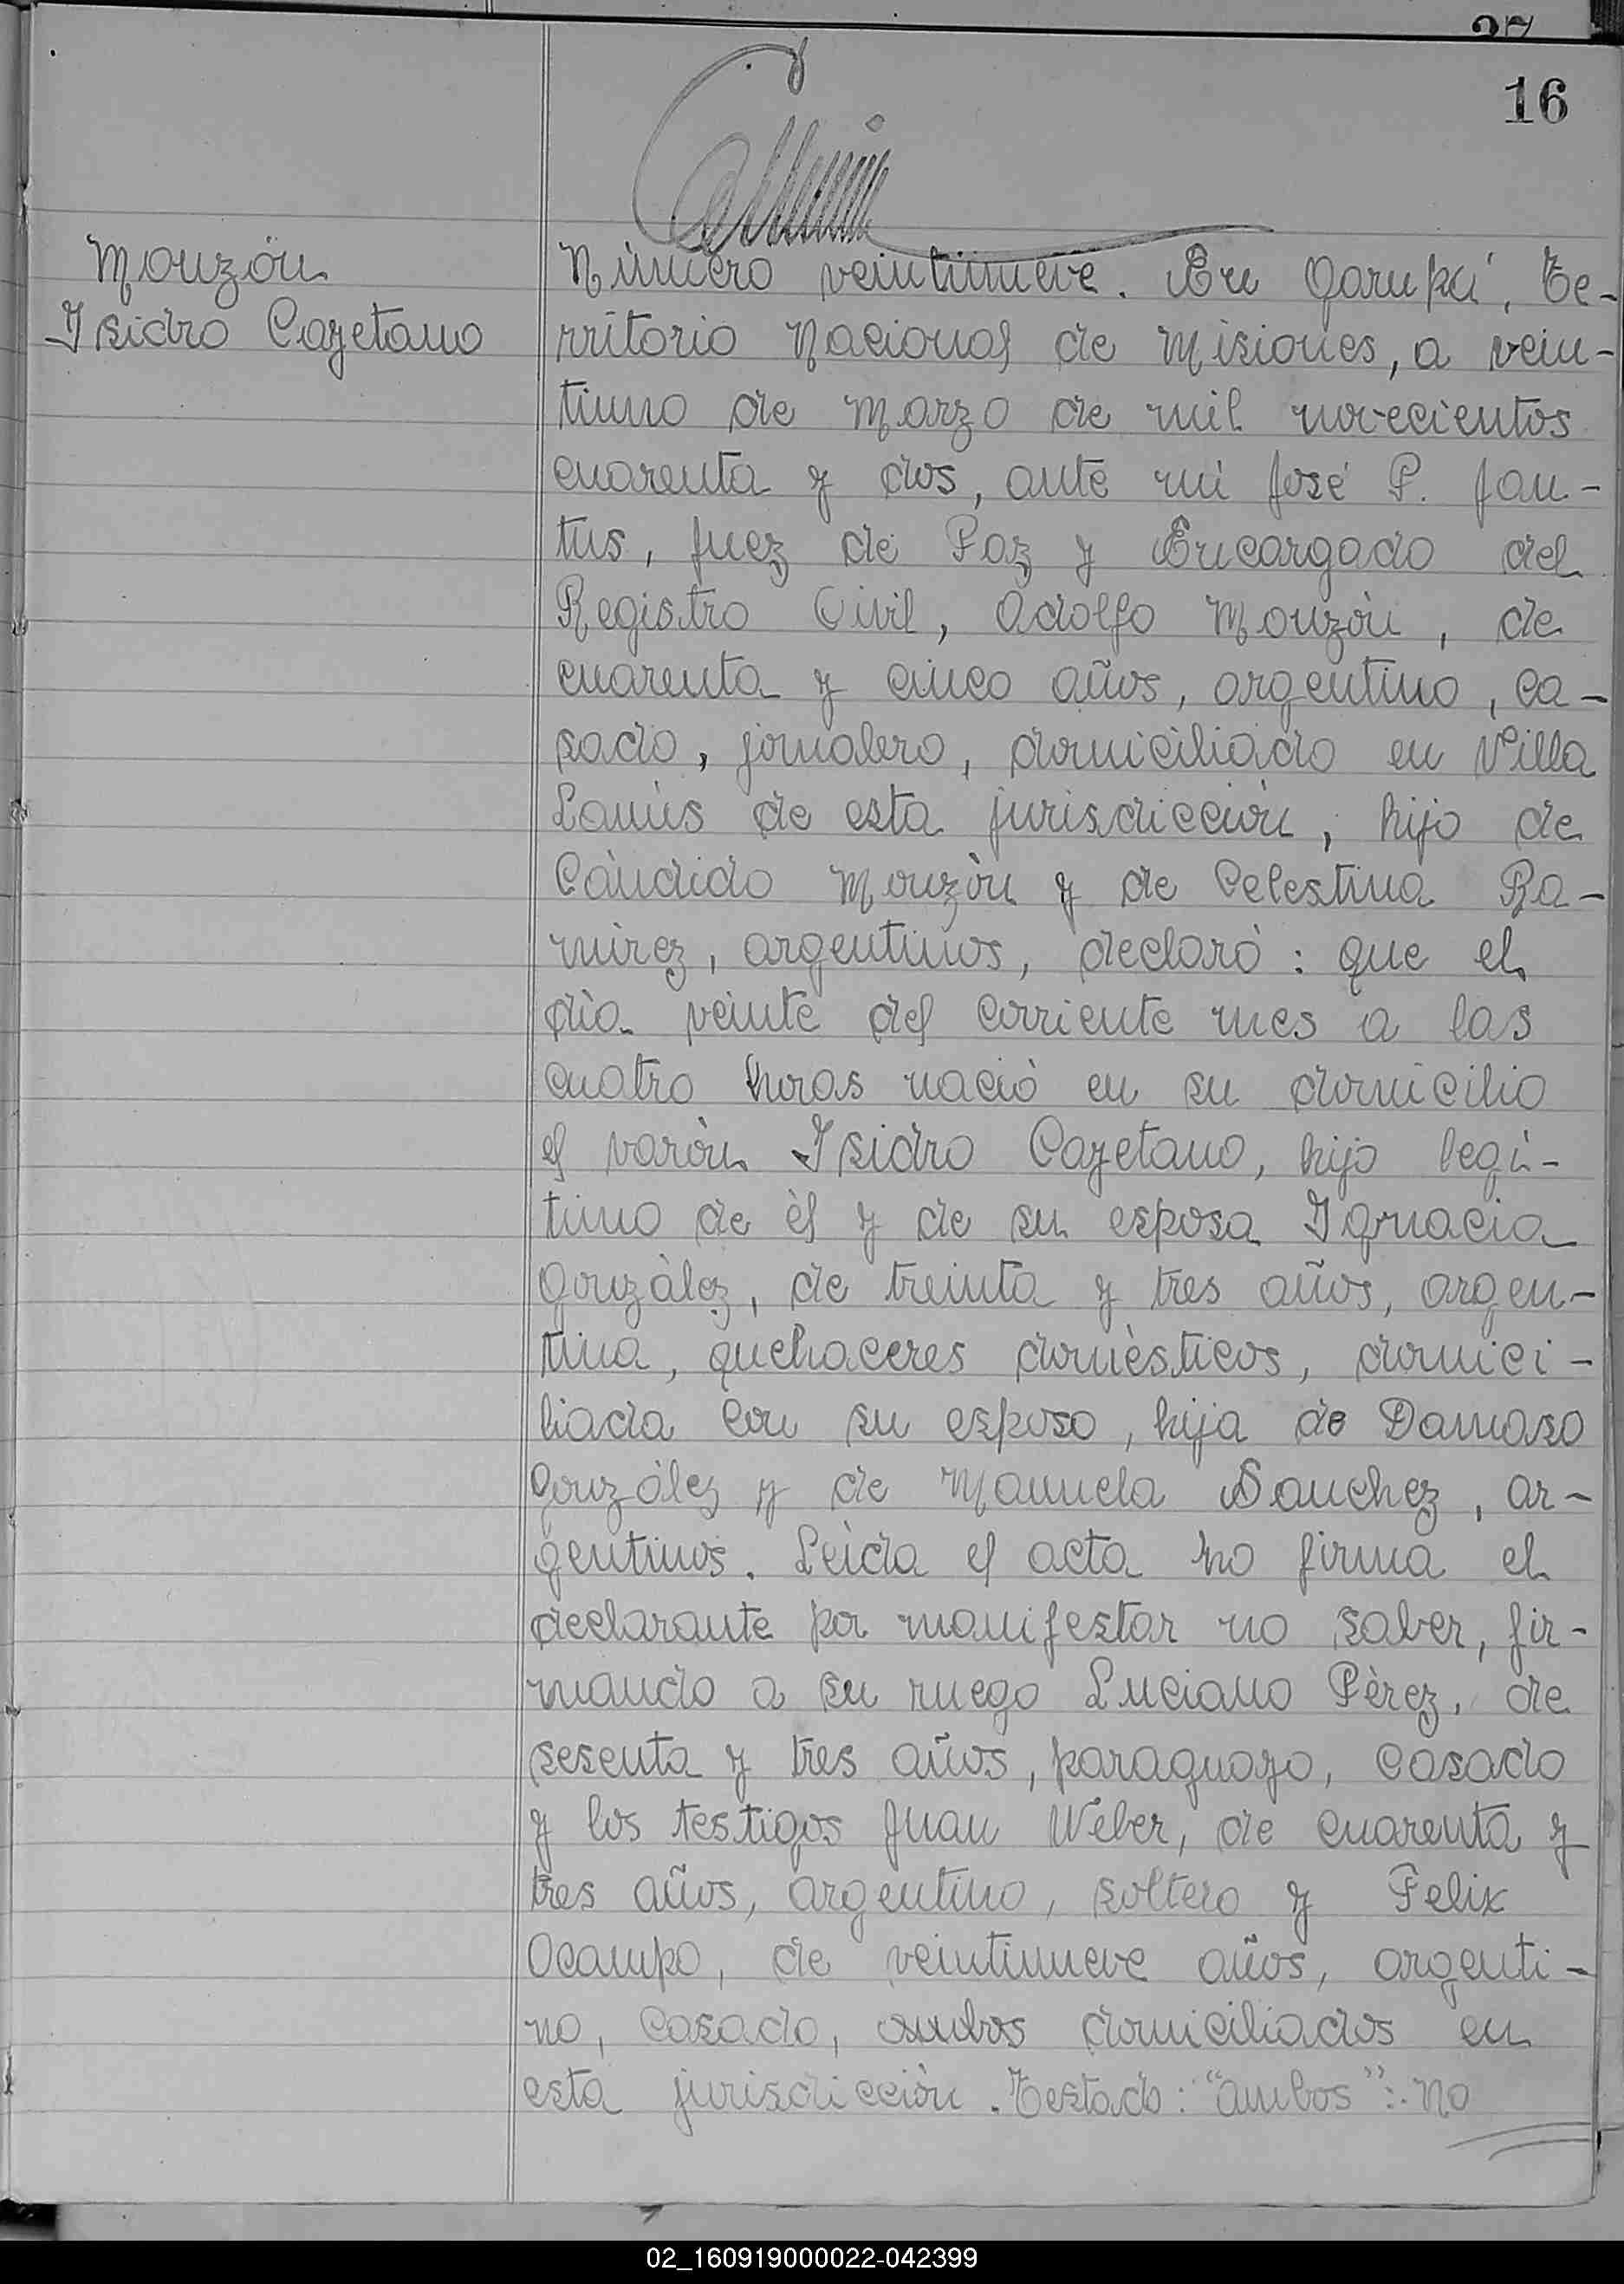 16
Monzón
Isidro Cayetano
Número veintinueve. En Garupá, Te-
rritorio Nacional de Misiones, a vein-
tiuno de Marzo de mil novecientos
cuarenta y dos, ante mí José P. Jan-
tus, Juez de Paz y Encargado del
Registro Civil, Adolfo Monzón, de
cuarenta y cinco años, argentino, ca-
sado, jornalero, domiciliado en Villa
Lanús de esta jurisdicción, hijo de
Cándido Monzón y de Celestina Ra-
mírez, argentinos, declaró: que el
día veinte del corriente mes a las
cuatro horas nació en su domicilio
el varón Isidro Cayetano, hijo legí-
timo de él y de su esposa Ignacia
González, de treinta y tres años, argen-
tina, quehaceres domésticos, domici-
liada con su esposo, hija de Damaso
González y de Manuela Sanchez, ar-
gentinos. Leída el acta no firma el
declarante por manifestar no saber, fir-
mando a su ruego Luciano Pérez, de
sesenta y tres años, paraguayo, casado
y los testigos Juan Weber, de cuarenta y
tres años, argentino, soltero y Felix
Ocampo, de veintinueve años, argenti-
no, casado, ambos domiciliados en
esta jurisdicción. Testado: "ambos": No
02_160919000022-042399